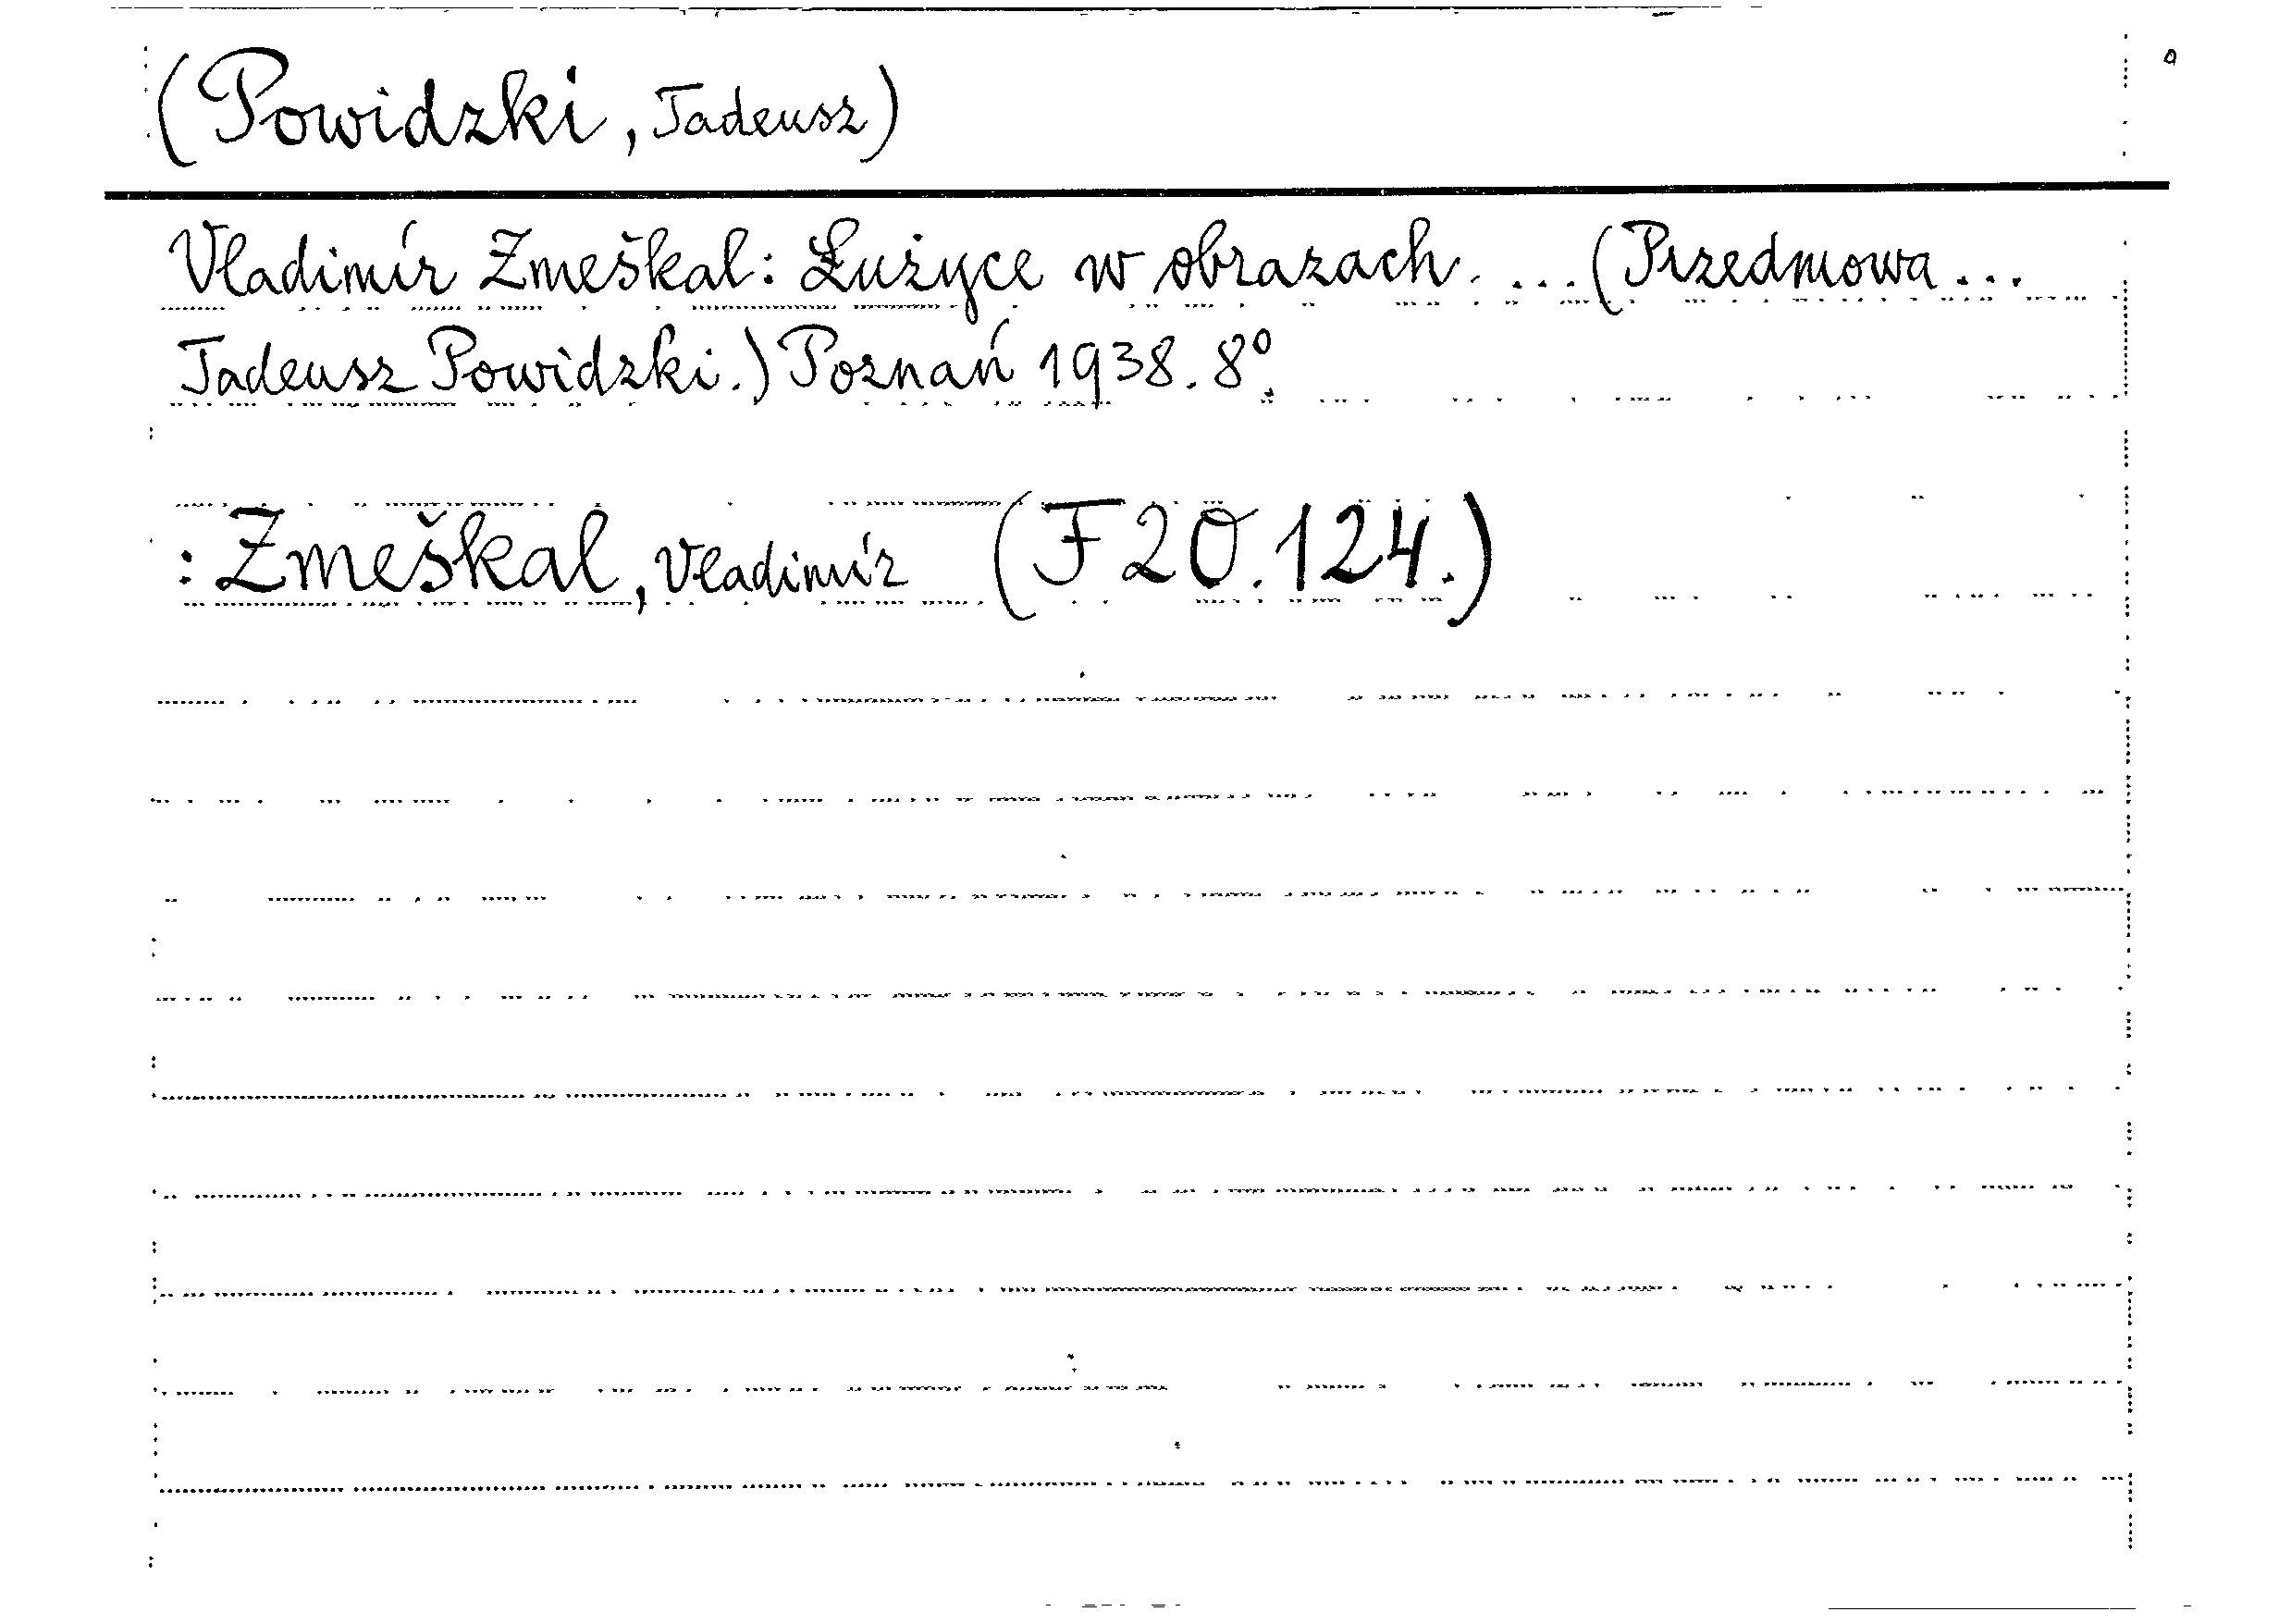 (Powidzki, Tadeusz)
Vladimír Zmeškal: Łużyce w obrazach. ... (Przedmowa ...
Tadeusz Powidzki.) Poznań 1938. 8°.
: Zmeškal, Vladimír (F 20.124.)